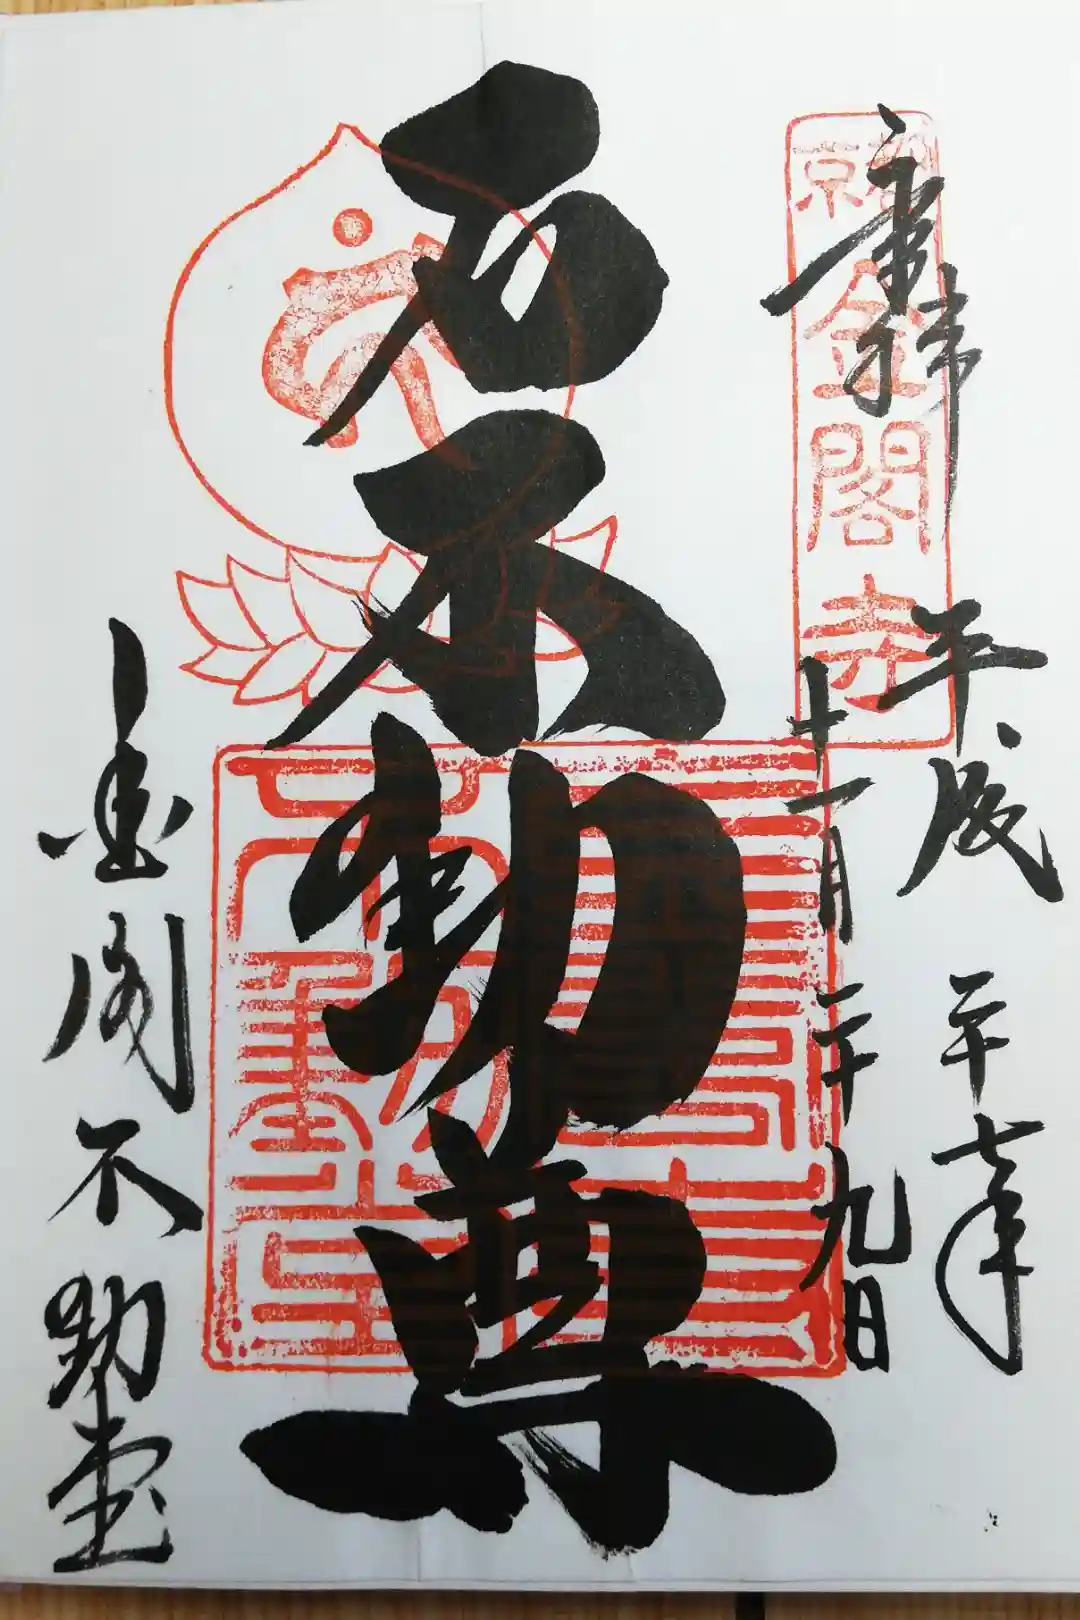 奉拝
平成二十七年
十一月二十九日
京都
金閣寺
石不動尊
金閣不動堂